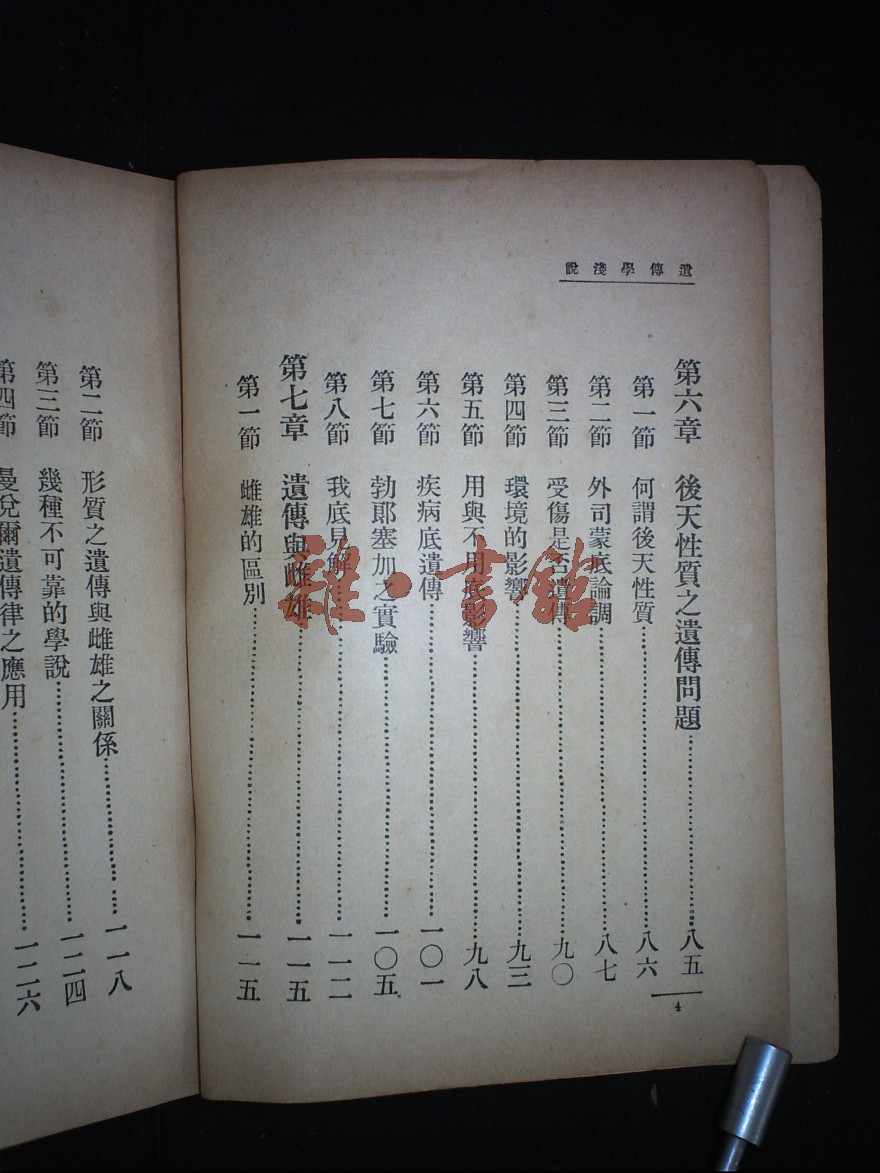 遺傳學淺說
第六章 後天性質之遺傳問題……八五
第一節 何謂後天性質……八六
第二節 外司蒙底論調……八七
第三節 受傷是否遺傳……九〇
第四節 環境的影響……九三
第五節 用與不用底影響……九八
第六節 疾病底遺傳……一〇一
第七節 勃郎塞加之實驗……一〇五
第八節 我底見解……一一二
第七章 遺傳與雌雄……一一五
第一節 雌雄的區別……一一五
4
第二節 形質之遺傳與雌雄之關係……一一八
第三節 幾種不可靠的學說……一二四
第四節 曼兌爾遺傳律之應用……一二六
雜·書館